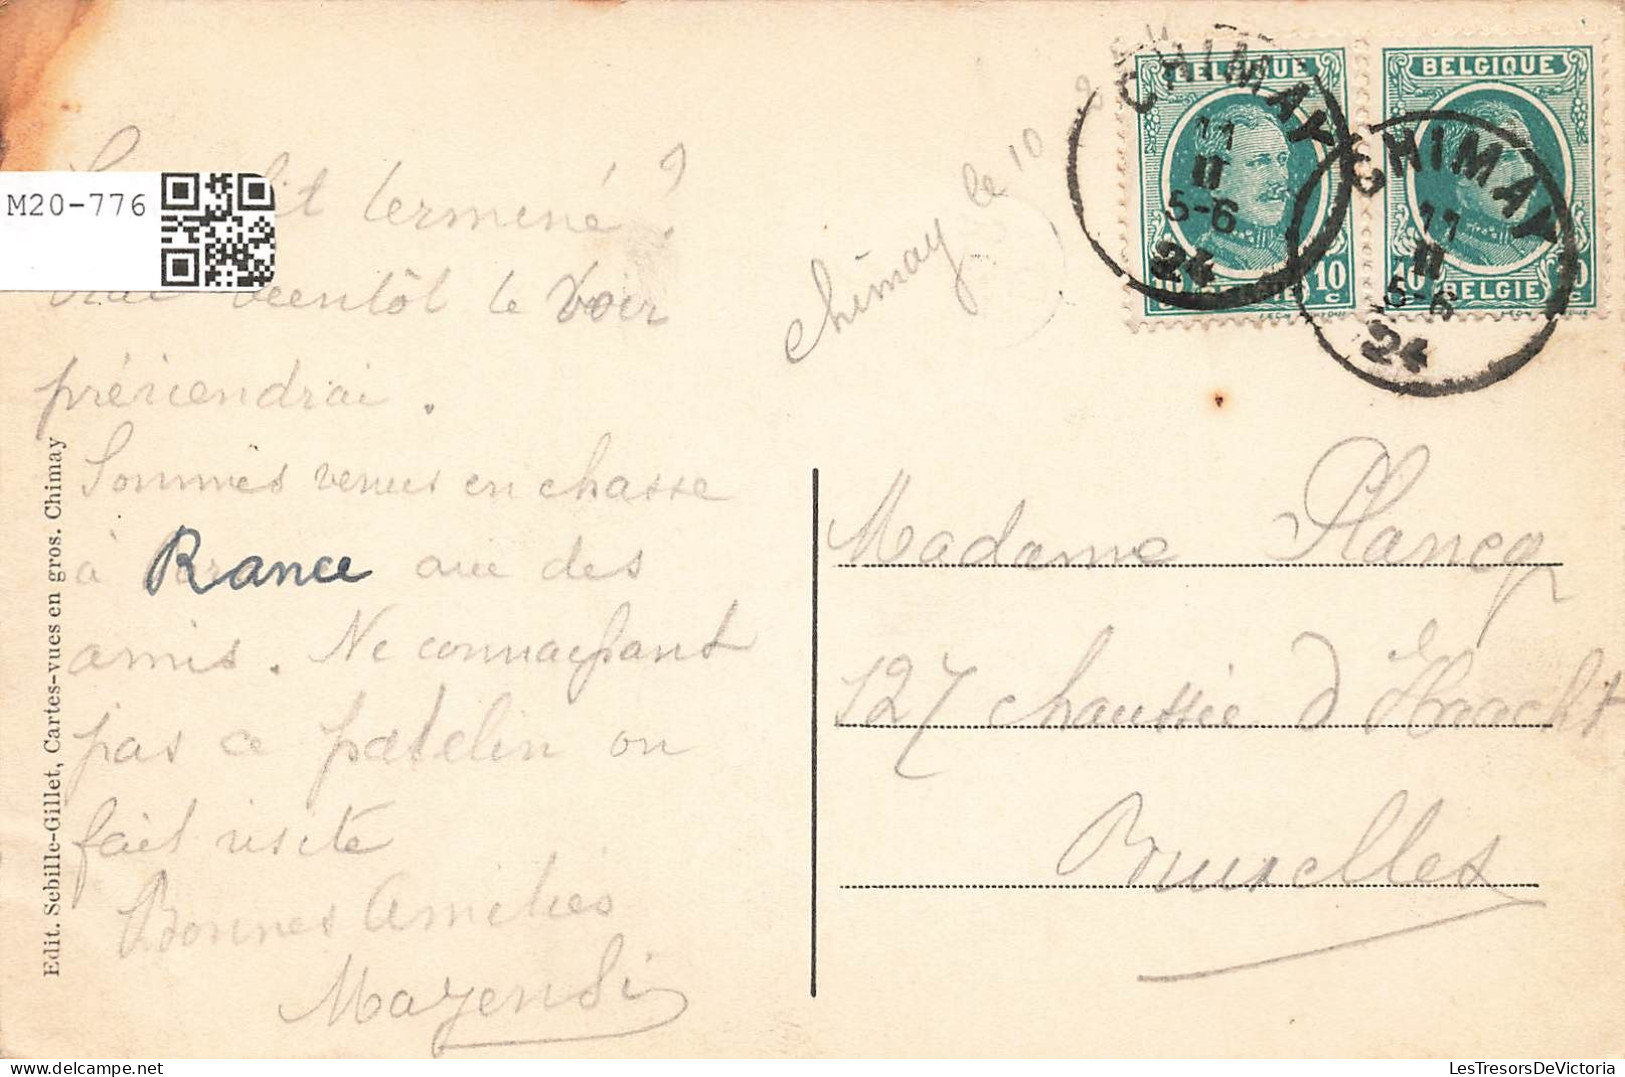 M20-776
lit terminé ?
bientôt le voir
préviendrai.
Sommes venus en chasse
à Rance avec des
amis. Ne connaissant
pas ce patelin on
fait visite
Bonnes Amitiés
Edit. Sebille-Gillet, Cartes-vues en gros. Chimay
Chimay le 10
BELGIQUE
10 c
BELGIE
BELGIQUE
10 c
BELGIE
CHIMAY
11
II
5-6
24
CHIMAY
11
II
5-6
24
Madame Plancq
127 chaussée d'Haecht
Bruxelles
LesTresorsDeVictoria